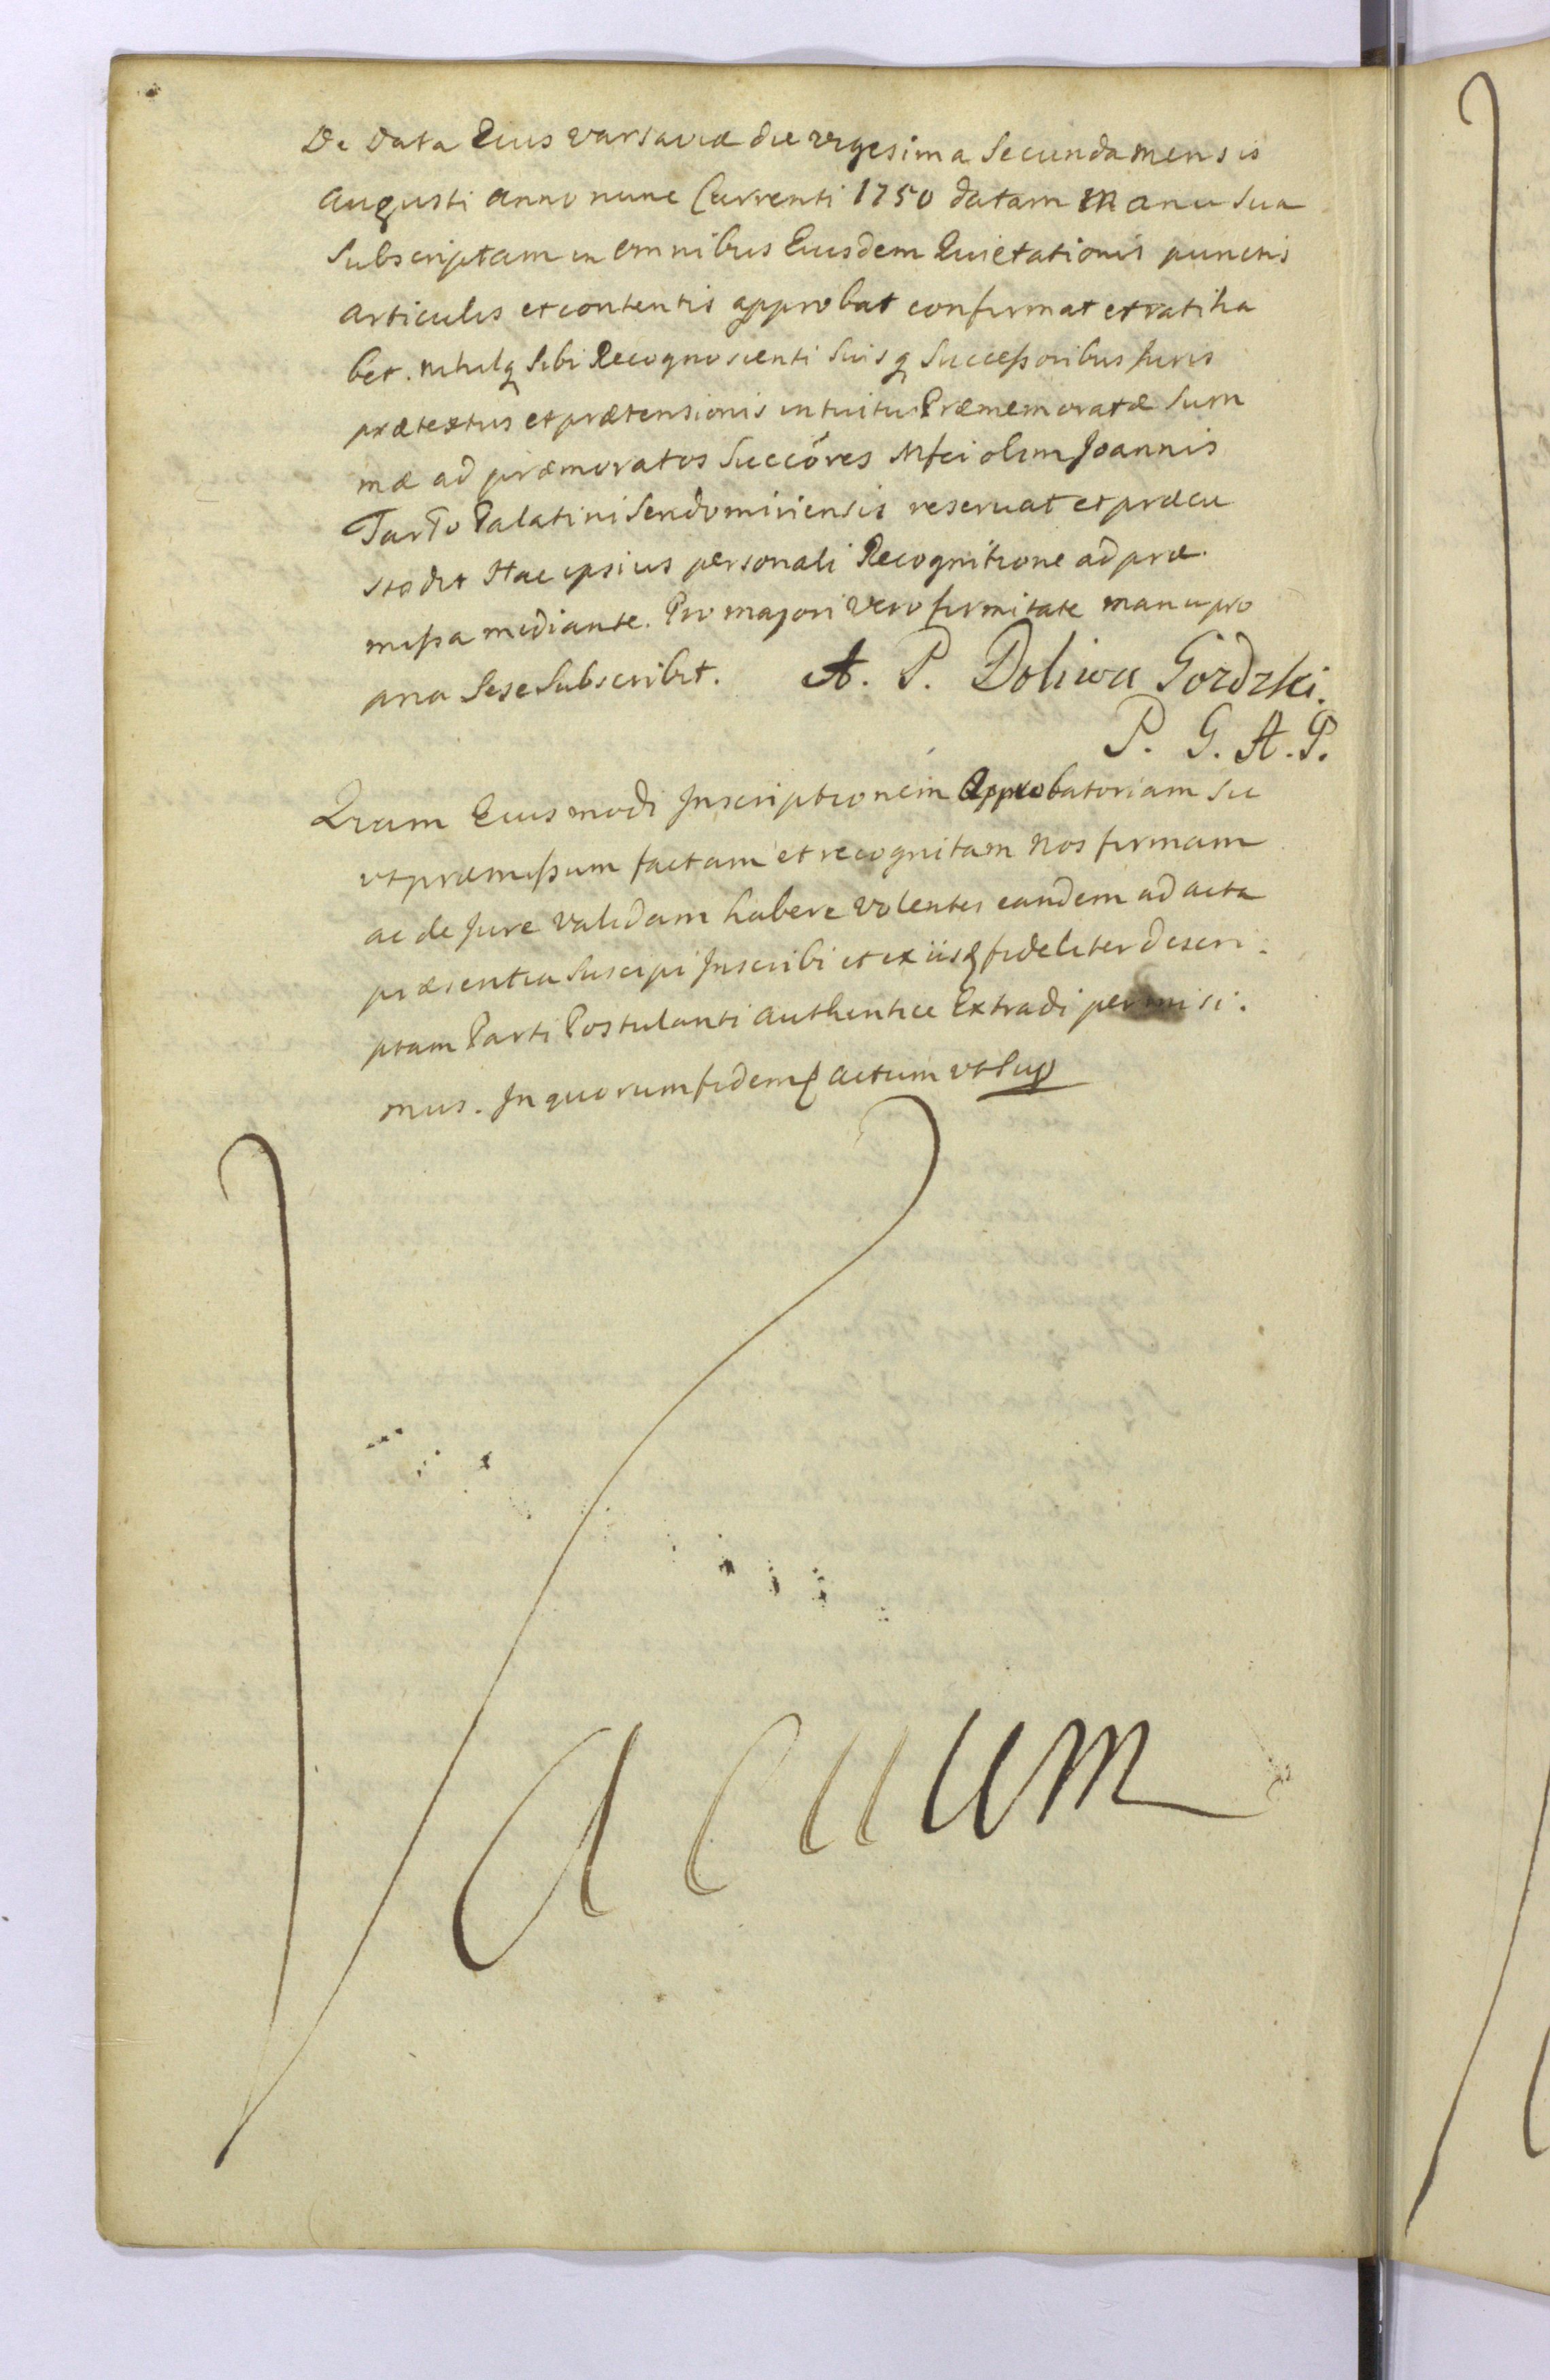 De Data Eius Varsaviæ die vigesima Secunda mensis
Augusti anno nunc Currenti 1750 datam Manu Sua
Subscriptam in omnibus Eiusdem Quietationis punctis
articulis et contentis approbat confirmat et ratiha
bet. nihilq Sibi Recognoscenti Suisq Successoribus Juris
prætextus et prætensionis intuitu Præmemoratæ Sum
mæ ad præmoratos Succóres Mfci olim Joannis
Tarło Palatini Sendomiriensis reservat et præcu
stodit Hac ipsius personali Recognitione ad præ.
missa mediante. Pro majori vero firmitate manu pro
pria Sese Subscribit. A. P. Doliwa Gozdzki.
P. G. A. P.
Quam Eiusmodi Inscriptionem Approbatoriam Sic
ut præmissum factam et recognitam Nos firmam
ac de Jure validam habere volentes eandem ad acta
præsentia Suscipi Inscribi et ex iisq fideliter descri.
ptam Parti Postulanti authentice Extradi permisi.
mus. In quorum fidem Actum ut Sup
Vacuum